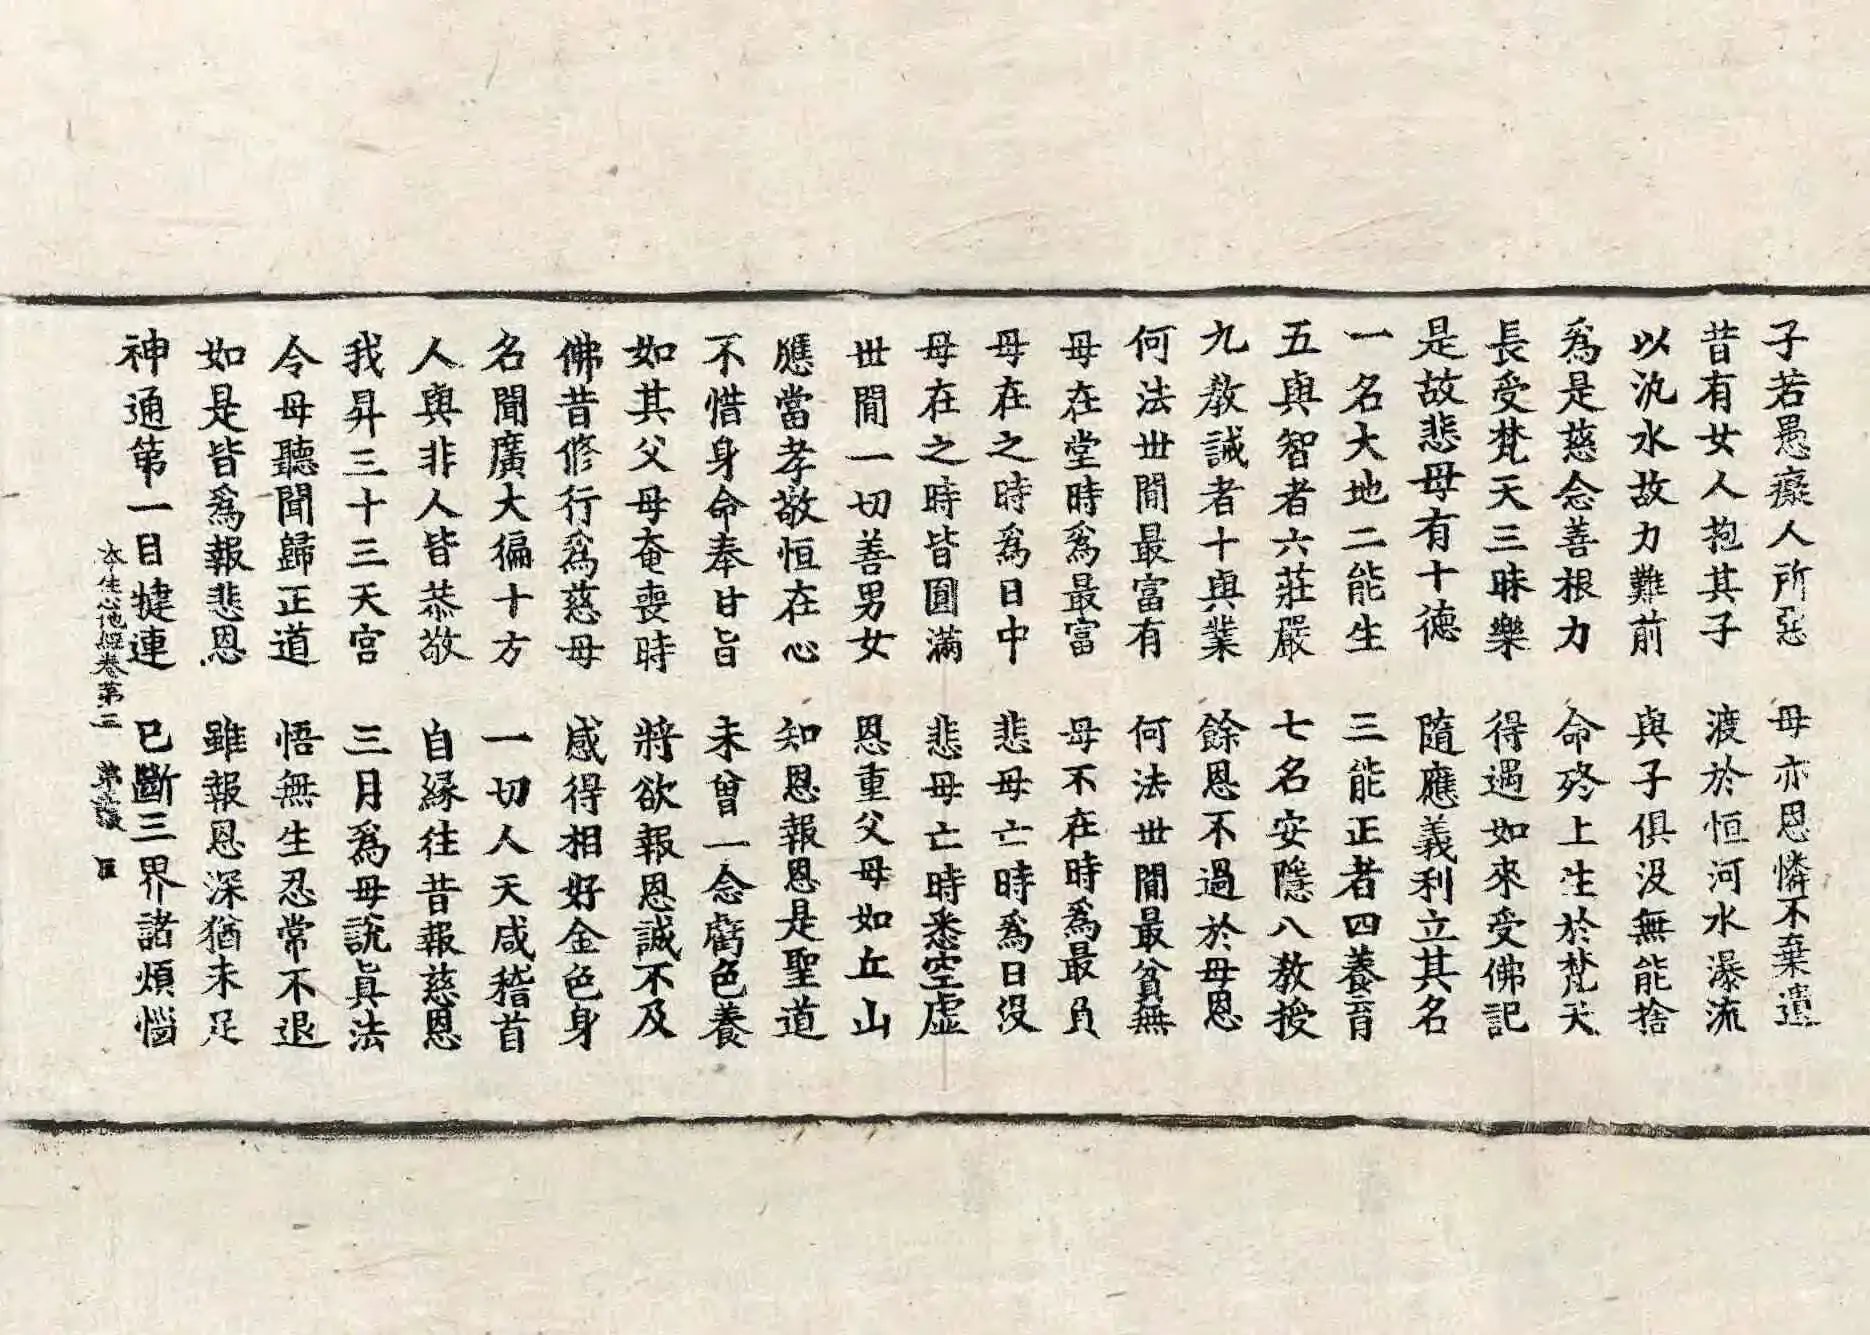 子若愚癡人所惡　母亦恩憐不棄遺
昔有女人抱其子　渡於恒河水瀑流
以氿水故力難前　與子俱沒無能捨
爲是慈念善根力　命終上生於梵天
長受梵天三昧樂　得遇如來受佛記
是故悲母有十德　隨應義利立其名
一名大地二能生　三能正者四養育
五與智者六莊嚴　七名安隱八教授
九教誡者十與業　餘恩不過於母恩
何法世閒最富有　何法世閒最貧無
母在堂時爲最富　母不在時爲最貧
母在之時爲日中　悲母亡時爲日沒
母在之時皆圓滿　悲母亡時悉空虛
世閒一切善男女　恩重父母如丘山
應當孝敬恒在心　知恩報恩是聖道
不惜身命奉甘旨　未曾一念虧色養
如其父母奄喪時　將欲報恩誠不及
佛昔修行爲慈母　感得相好金色身
名聞廣大徧十方　一切人天咸稽首
人與非人皆恭敬　自緣往昔報慈恩
我昇三十三天宮　三月爲母說眞法
令母聽聞歸正道　悟無生忍常不退
如是皆爲報悲恩　雖報恩深猶未足
神通第一目揵連　已斷三界諸煩惱
本生心地經卷第三　第　張